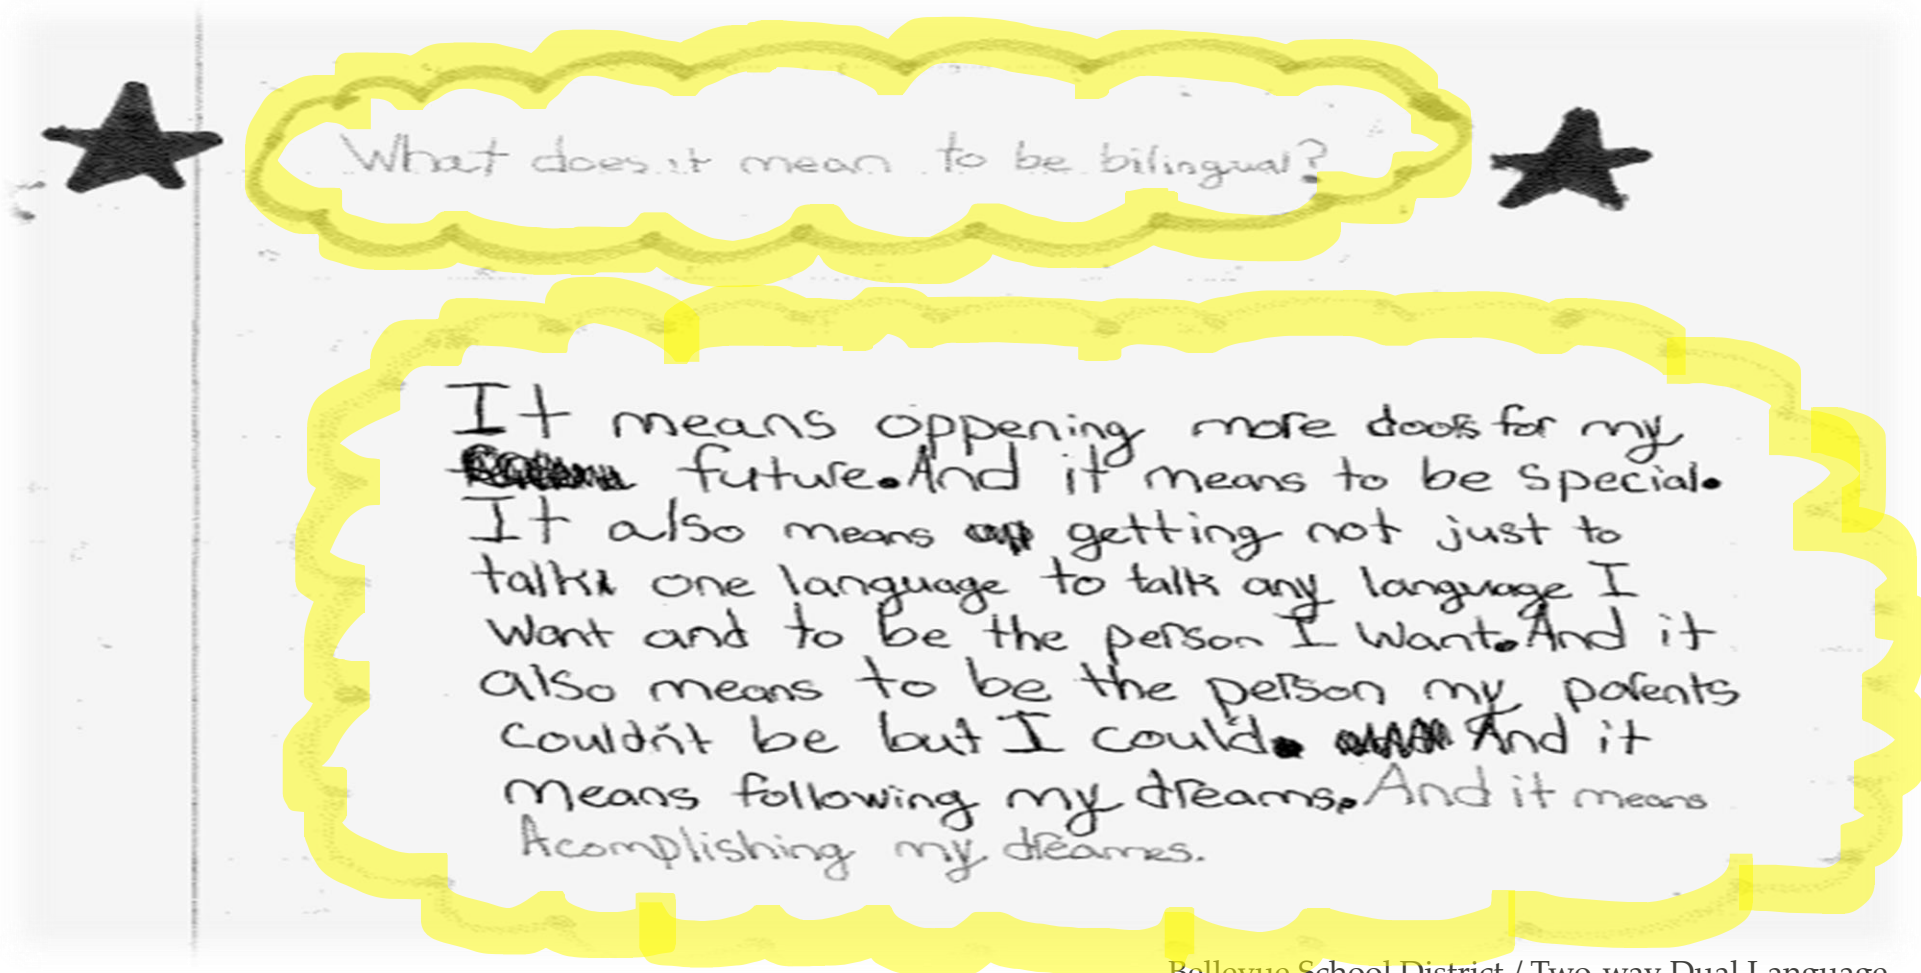 What does it mean to be bilingual?
It means oppening more doors for my
future. And it means to be special.
It also means getting not just to
talk one language to talk any language I
want and to be the person I want. And it
also means to be the person my parents
couldn't be but I could. And it
means following my dreams. And it means
Acomplishing my dreames.
Bellevue School District / Two-way Dual Language